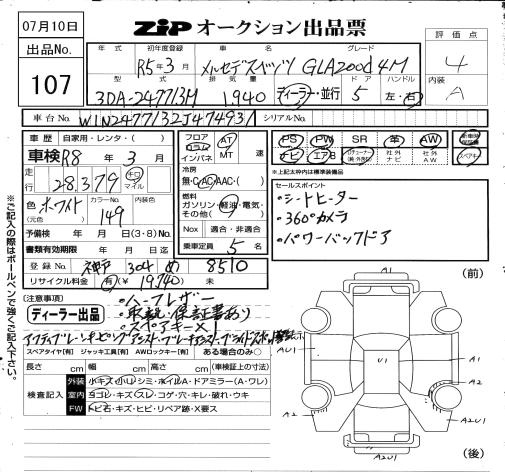 07月10日
ZiP オークション出品票
評価点
出品No.
年式 初年度登録 車名 グレード
R5年3月 メルセデスベンツ GLA200d 4M
4
107
型式 排気量 ドア ハンドル
内装
3DA-247713M 1,940 ディーラー・並行 5 左・右
A
車台No. W1N2477132J474931 シリアルNo.
車歴 自家用・レンタ・( )
車検 R8年3月
走行 28,379 キロ マイル
色 (元色) ホワイト カラーNo. 149 内装色
予備検 年 月 日(3・8)No.
書類有効期限 年 月 日迄
フロア コラム インパネ AT MT 速
冷房 無・C・AC・AAC・( )
燃料
ガソリン・軽油・電気・その他( )
Nox 適合・非適合
乗車定員 5名
PS PW SR 革 AW
ナビ エアB 社外ナビ 社外AW スペアキー
※上記太枠内は標準装備品
セールスポイント
・シートヒーター
・360°カメラ
・パワーバックドア
登録No. 神戸 304 め 8510
リサイクル料金 (有)(¥19,740) 未
(注意事項)
・ハーフレザー
ディーラー出品
・取説・保証書あり
・スペアキー×1
スペアタイヤ[有] ジャッキ工具[有] AWロックキー[有] ある場合のみ○
長さ cm 幅 cm 高さ cm (車検証上の寸法)
検査記入
外装 小キズ・小凹・シミ・ホイルA・ドアミラー(A・ワレ)
室内 ヨゴレ・キズ・スレ・コゲ・穴・キレ・破れ・ウキ
FW トビ石・キズ・ヒビ・リペア跡・X要ス
※ご記入の際はボールペンで強くご記入下さい。
(前)
AU1
U1
A1
A1
A2
A2
A2U1
(後)